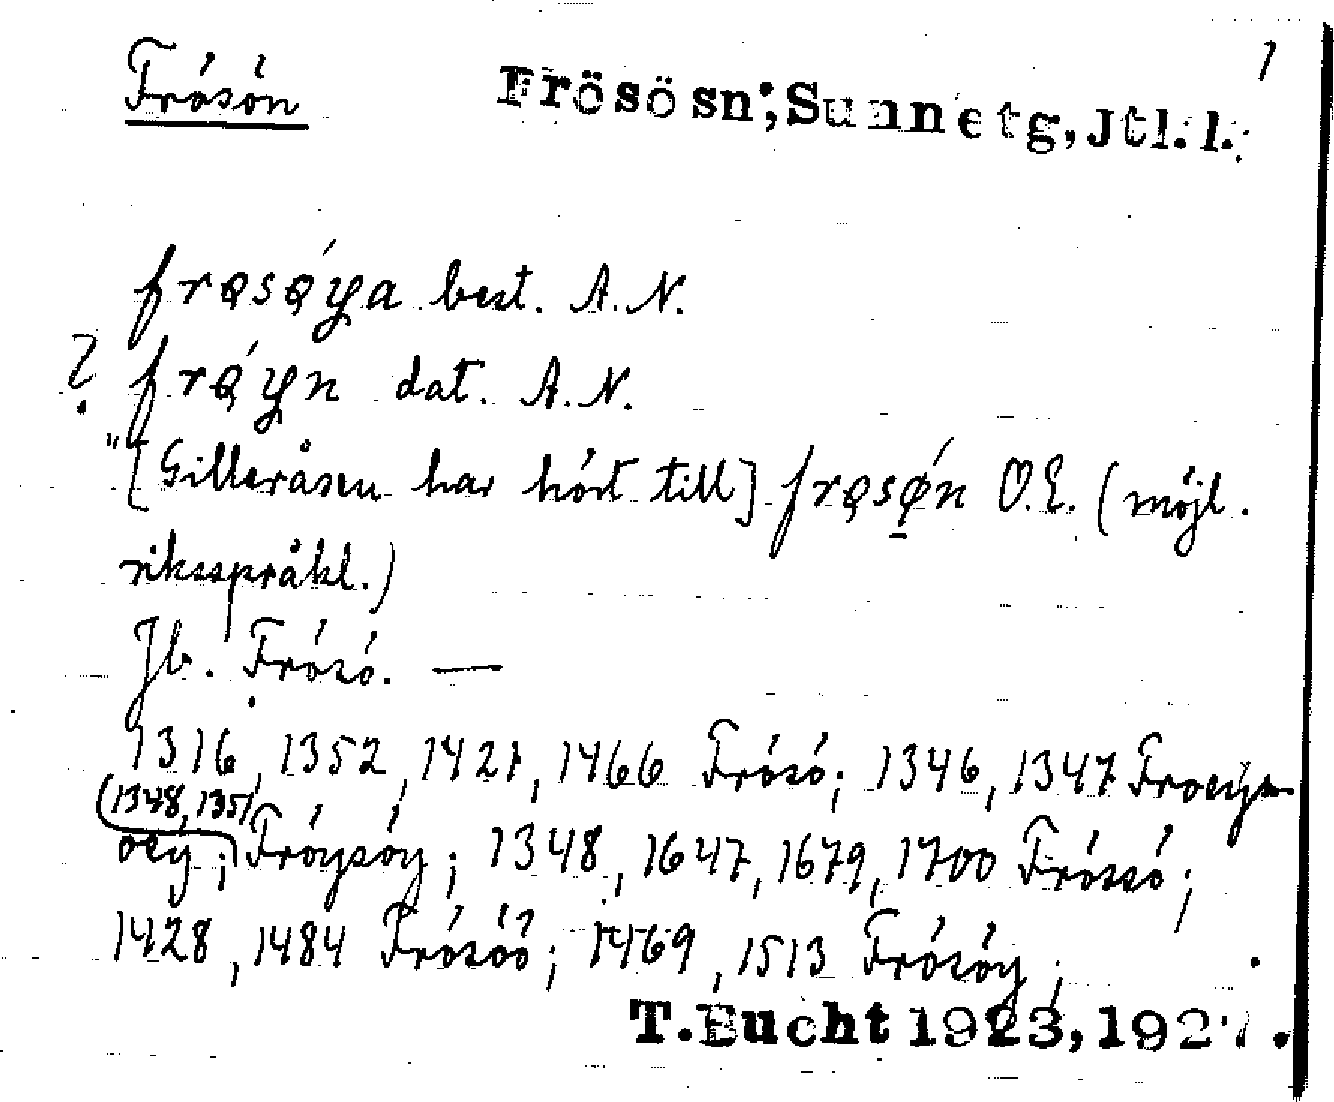 Frösön Frösösn; Sunnetg, Jtl.l. 1
frǫsǫ́ya best. A.N.
? frǫ́yn dat. A.N.
"[Gilleråsen har hört till] frǫsǿ̨n O.E. (möjl.
riksspråkl.)
Jb. Frösö. —
1316, 1352, 1421, 1466 Frösö; 1346, 1347 Froeys-
(1348, 1351)
oey; Fröysöy; 1348, 1647, 1679, 1700 Frössö;
1428, 1484 Frösöö; 1469, 1513 Frösöy;
T.Bucht 1923, 1927.